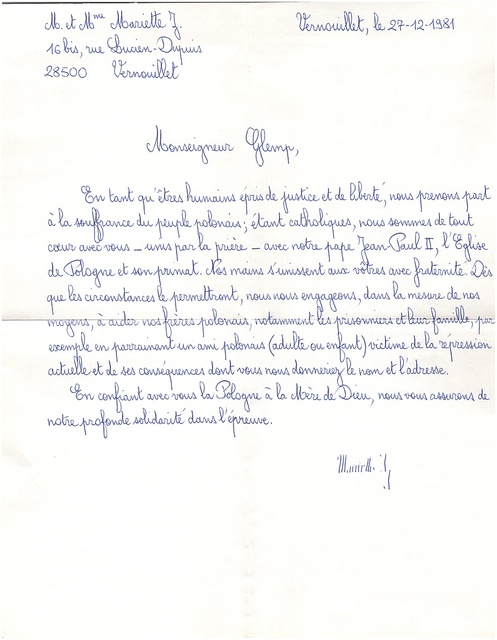 M. et Mme Mariette J. Vernouillet, le 27-12-1981
16 bis, rue Lucien-Dupuis
28500 Vernouillet
Monseigneur Glemp,
En tant qu'êtres humains épris de justice et de liberté, nous prenons part
à la souffrance du peuple polonais ; étant catholiques, nous sommes de tout
cœur avec vous – unis par la prière – avec notre pape Jean-Paul II, l'Eglise
de Pologne et son primat. Nos mains s'unissent aux vôtres avec fraternité. Dès
que les circonstances le permettront, nous nous engageons, dans la mesure de nos
moyens, à aider nos frères polonais, notamment les prisonniers et leur famille, par
exemple en parrainant un ami polonais (adulte ou enfant) victime de la répression
actuelle et de ses conséquences dont vous nous donneriez le nom et l'adresse.
En confiant avec vous la Pologne à la Mère de Dieu, nous vous assurons de
notre profonde solidarité dans l'épreuve.